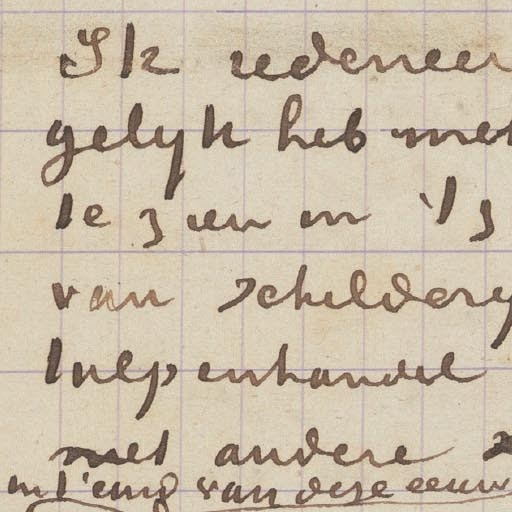 Ik redeneer
gelijk heb met
te zien in
van schildery
tulpenhandel
met andere
van deze eeuw